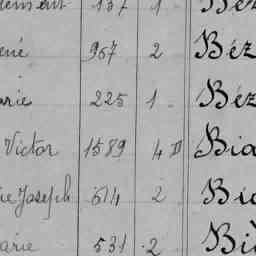 137 1 Béz
ené 967 2 Béz
arie 225 1 Béz
Victor 1589 4 D Bia
re Joseph 614 2 Bia
arie 531 2 Biè